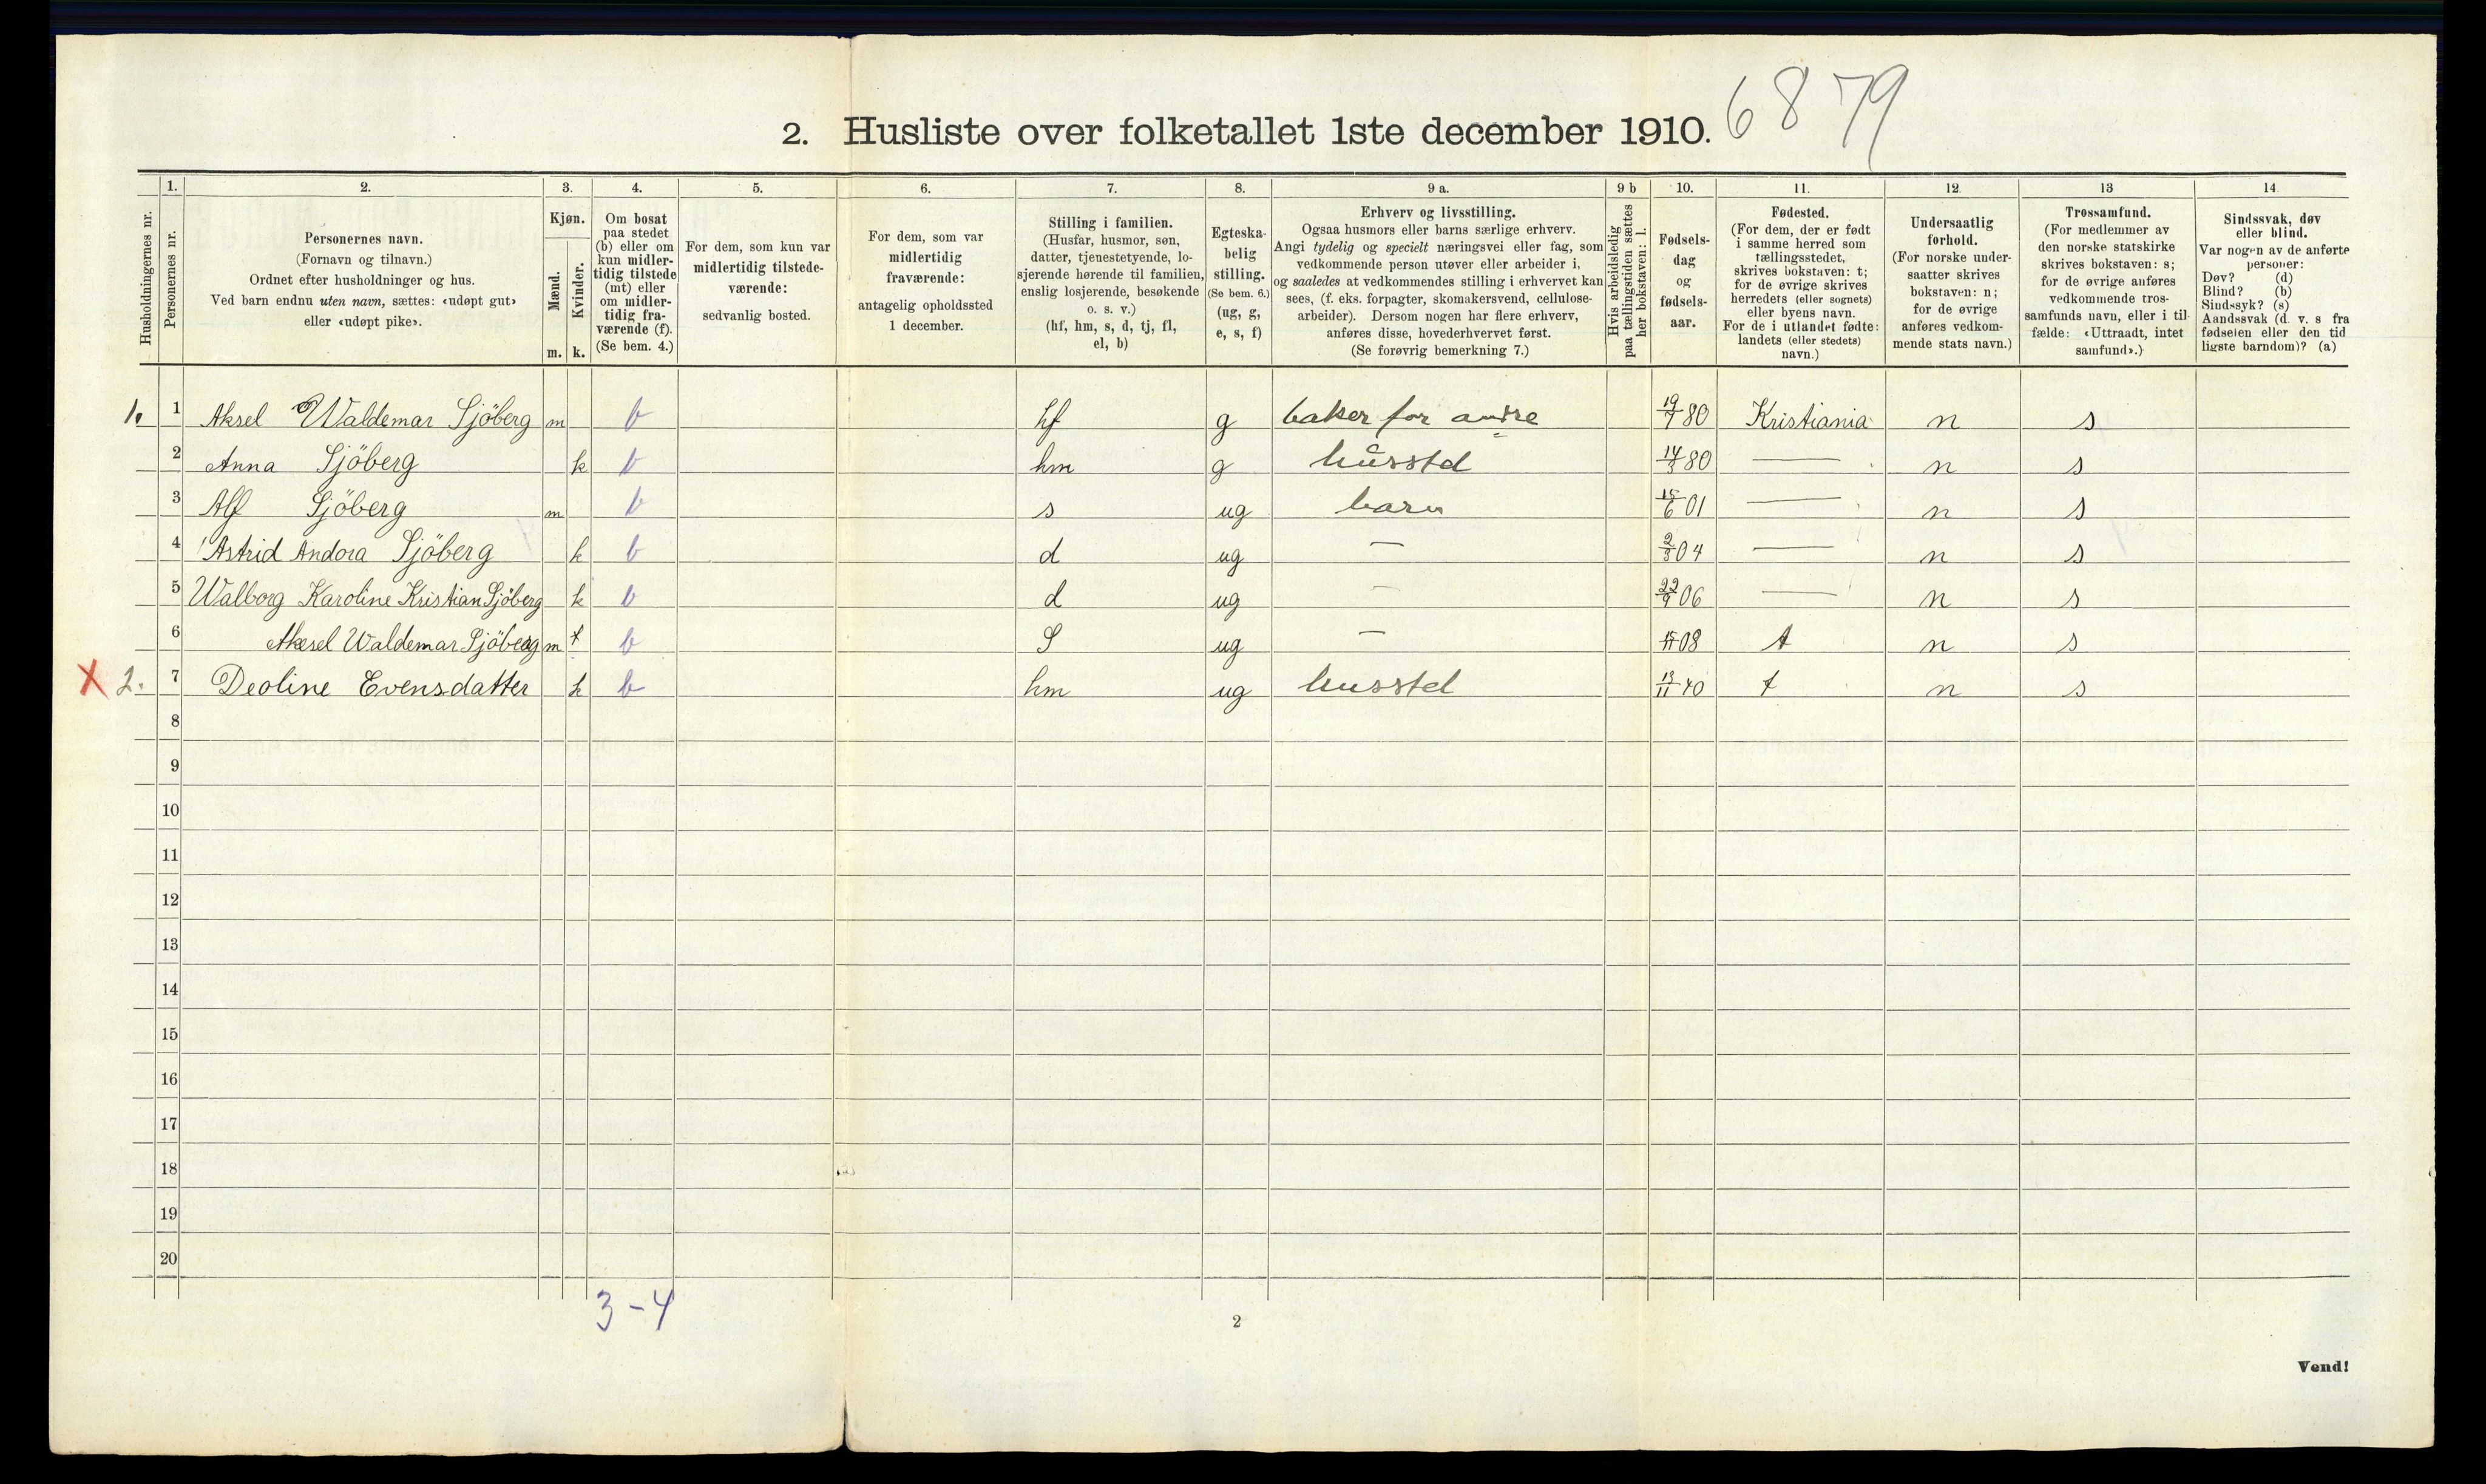 6879
2. Husliste over folketallet 1ste december 1910.
Husholdningernes nr.
1.
Personernes nr.
2.
Personernes navn.
(Fornavn og tilnavn.)
Ordnet efter husholdninger og hus.
Ved barn endnu uten navn, sættes: «udøpt gut»
eller «udøpt pike».
3.
Kjøn.
Mænd.
Kvinder.
m. k.
4.
Om bosat
paa stedet
(b) eller om
kun midler-
tidig tilstede
(mt) eller
om midler-
tidig fra-
værende (f).
(Se bem. 4.)
5.
For dem, som kun var
midlertidig tilstede-
værende:
sedvanlig bosted.
6.
For dem, som var
midlertidig
fraværende:
antagelig opholdssted
1 december.
7.
Stilling i familien.
(Husfar, husmor, søn,
datter, tjenestetyende, lo-
sjerende hørende til familien,
enslig losjerende, besøkende
o. s. v.)
(hf, hm, s, d, tj, fl,
el, b)
8.
Egteska-
belig
stilling.
(Se bem. 6.)
(ug, g,
e, s, f)
9 a.
Erhverv og livsstilling.
Ogsaa husmors eller barns særlige erhverv.
Angi tydelig og specielt næringsvei eller fag, som
vedkommende person utøver eller arbeider i,
og saaledes at vedkommendes stilling i erhvervet kan
sees, (f. eks. forpagter, skomakersvend, cellulose-
arbeider). Dersom nogen har flere erhverv,
anføres disse, hovederhvervet først.
(Se forøvrig bemerkning 7.)
9 b
Hvis arbeidsledig
paa tællingstiden sættes
her bokstaven: l.
10.
Fødsels-
dag
og
fødsels-
aar.
11.
Fødested.
(For dem, der er født
i samme herred som
tællingsstedet,
skrives bokstaven: t;
for de øvrige skrives
herredets (eller sognets)
eller byens navn.
For de i utlandet fødte:
landets (eller stedets)
navn.)
12.
Undersaatlig
forhold.
(For norske under-
saatter skrives
bokstaven: n;
for de øvrige
anføres vedkom-
mende stats navn.)
13
Trossamfund.
(For medlemmer av
den norske statskirke
skrives bokstaven: s;
for de øvrige anføres
vedkommende tros-
samfunds navn, eller i til-
fælde: «Uttraadt, intet
samfund».)
14.
Sindssvak, døv
eller blind.
Var nogen av de anførte
personer:
Døv? (d)
Blind? (b)
Sindssyk? (s)
Aandssvak (d. v. s fra
fødselen eller den tid
ligste barndom)? (a)
1. 1 Aksel Waldemar Sjöberg m b hf g baker for andre 19/7 80 Kristiania n s
2 Anna Sjöberg k b hm g husstel 14/3 80 — n s
3 Alf Sjöberg m b s ug barn 15/6 01 — n s
4 Astrid Andora Sjöberg k b d ug — 2/3 04 — n s
5 Walborg Karoline Kristian Sjöberg k b d ug — 22/9 06 — n s
6 Aksel Waldemar Sjöberg m b S ug — 15/11 08 t n s
X 2. 7 Deoline Evensdatter k b hm ug husstel 13/11 40 t n s
8
9
10
11
12
13
14
15
16
17
18
19
20
3-4
2
Vend!